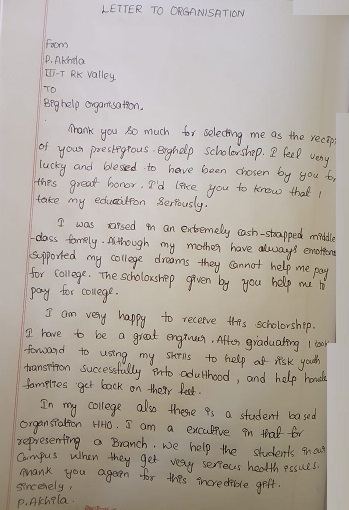 LETTER TO ORGANISATION
From
P. Akhila
III-T RK Valley
TO
Bighelp organisation.
Thank you so much for selecting me as the recipi
of your prestigious Bighelp scholorship. I feel very
lucky and blessed to have been chosen by you for
this great honor. I'd like you to know that I
take my education seriously.
I was raised in an extremely cash-strapped middle
-class family. Although my mother have always emotiona
supported my college dreams they cannot help me pay
for college. The scholoxship given by you help me to
pay for college.
I am very happy to receive this scholorship.
I have to be a great engineer. After graduating I look
forward to using my skills to help at risk youth
transition successfully into adulthood, and help
families get back on their feet.
In my college also there is a student based
organisation HHO. I am a excutive in that for
representing a Branch. We help the students in our
campus when they get very serious health essues.
Thank you again for this incredible gift.
Sincerely,
P. Akhila.